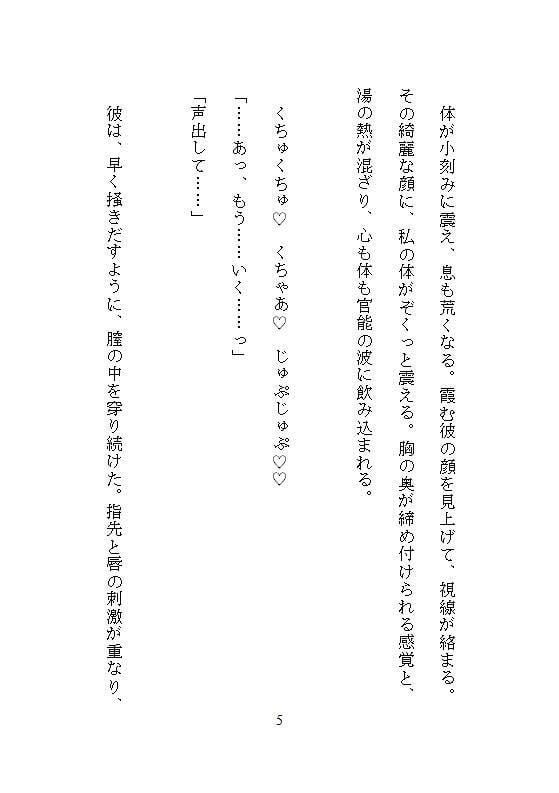 体が小刻みに震え、息も荒くなる。霞む彼の顔を見上げて、視線が絡まる。
その綺麗な顔に、私の体がぞくっと震える。胸の奥が締め付けられる感覚と、
湯の熱が混ざり、心も体も官能の波に飲み込まれる。
くちゅくちゅ♡　くちゃあ♡　じゅぷじゅぷ♡♡
「……あっ、もう……いく……っ」
「声出して……」
彼は、早く掻きだすように、膣の中を穿り続けた。指先と唇の刺激が重なり、
5